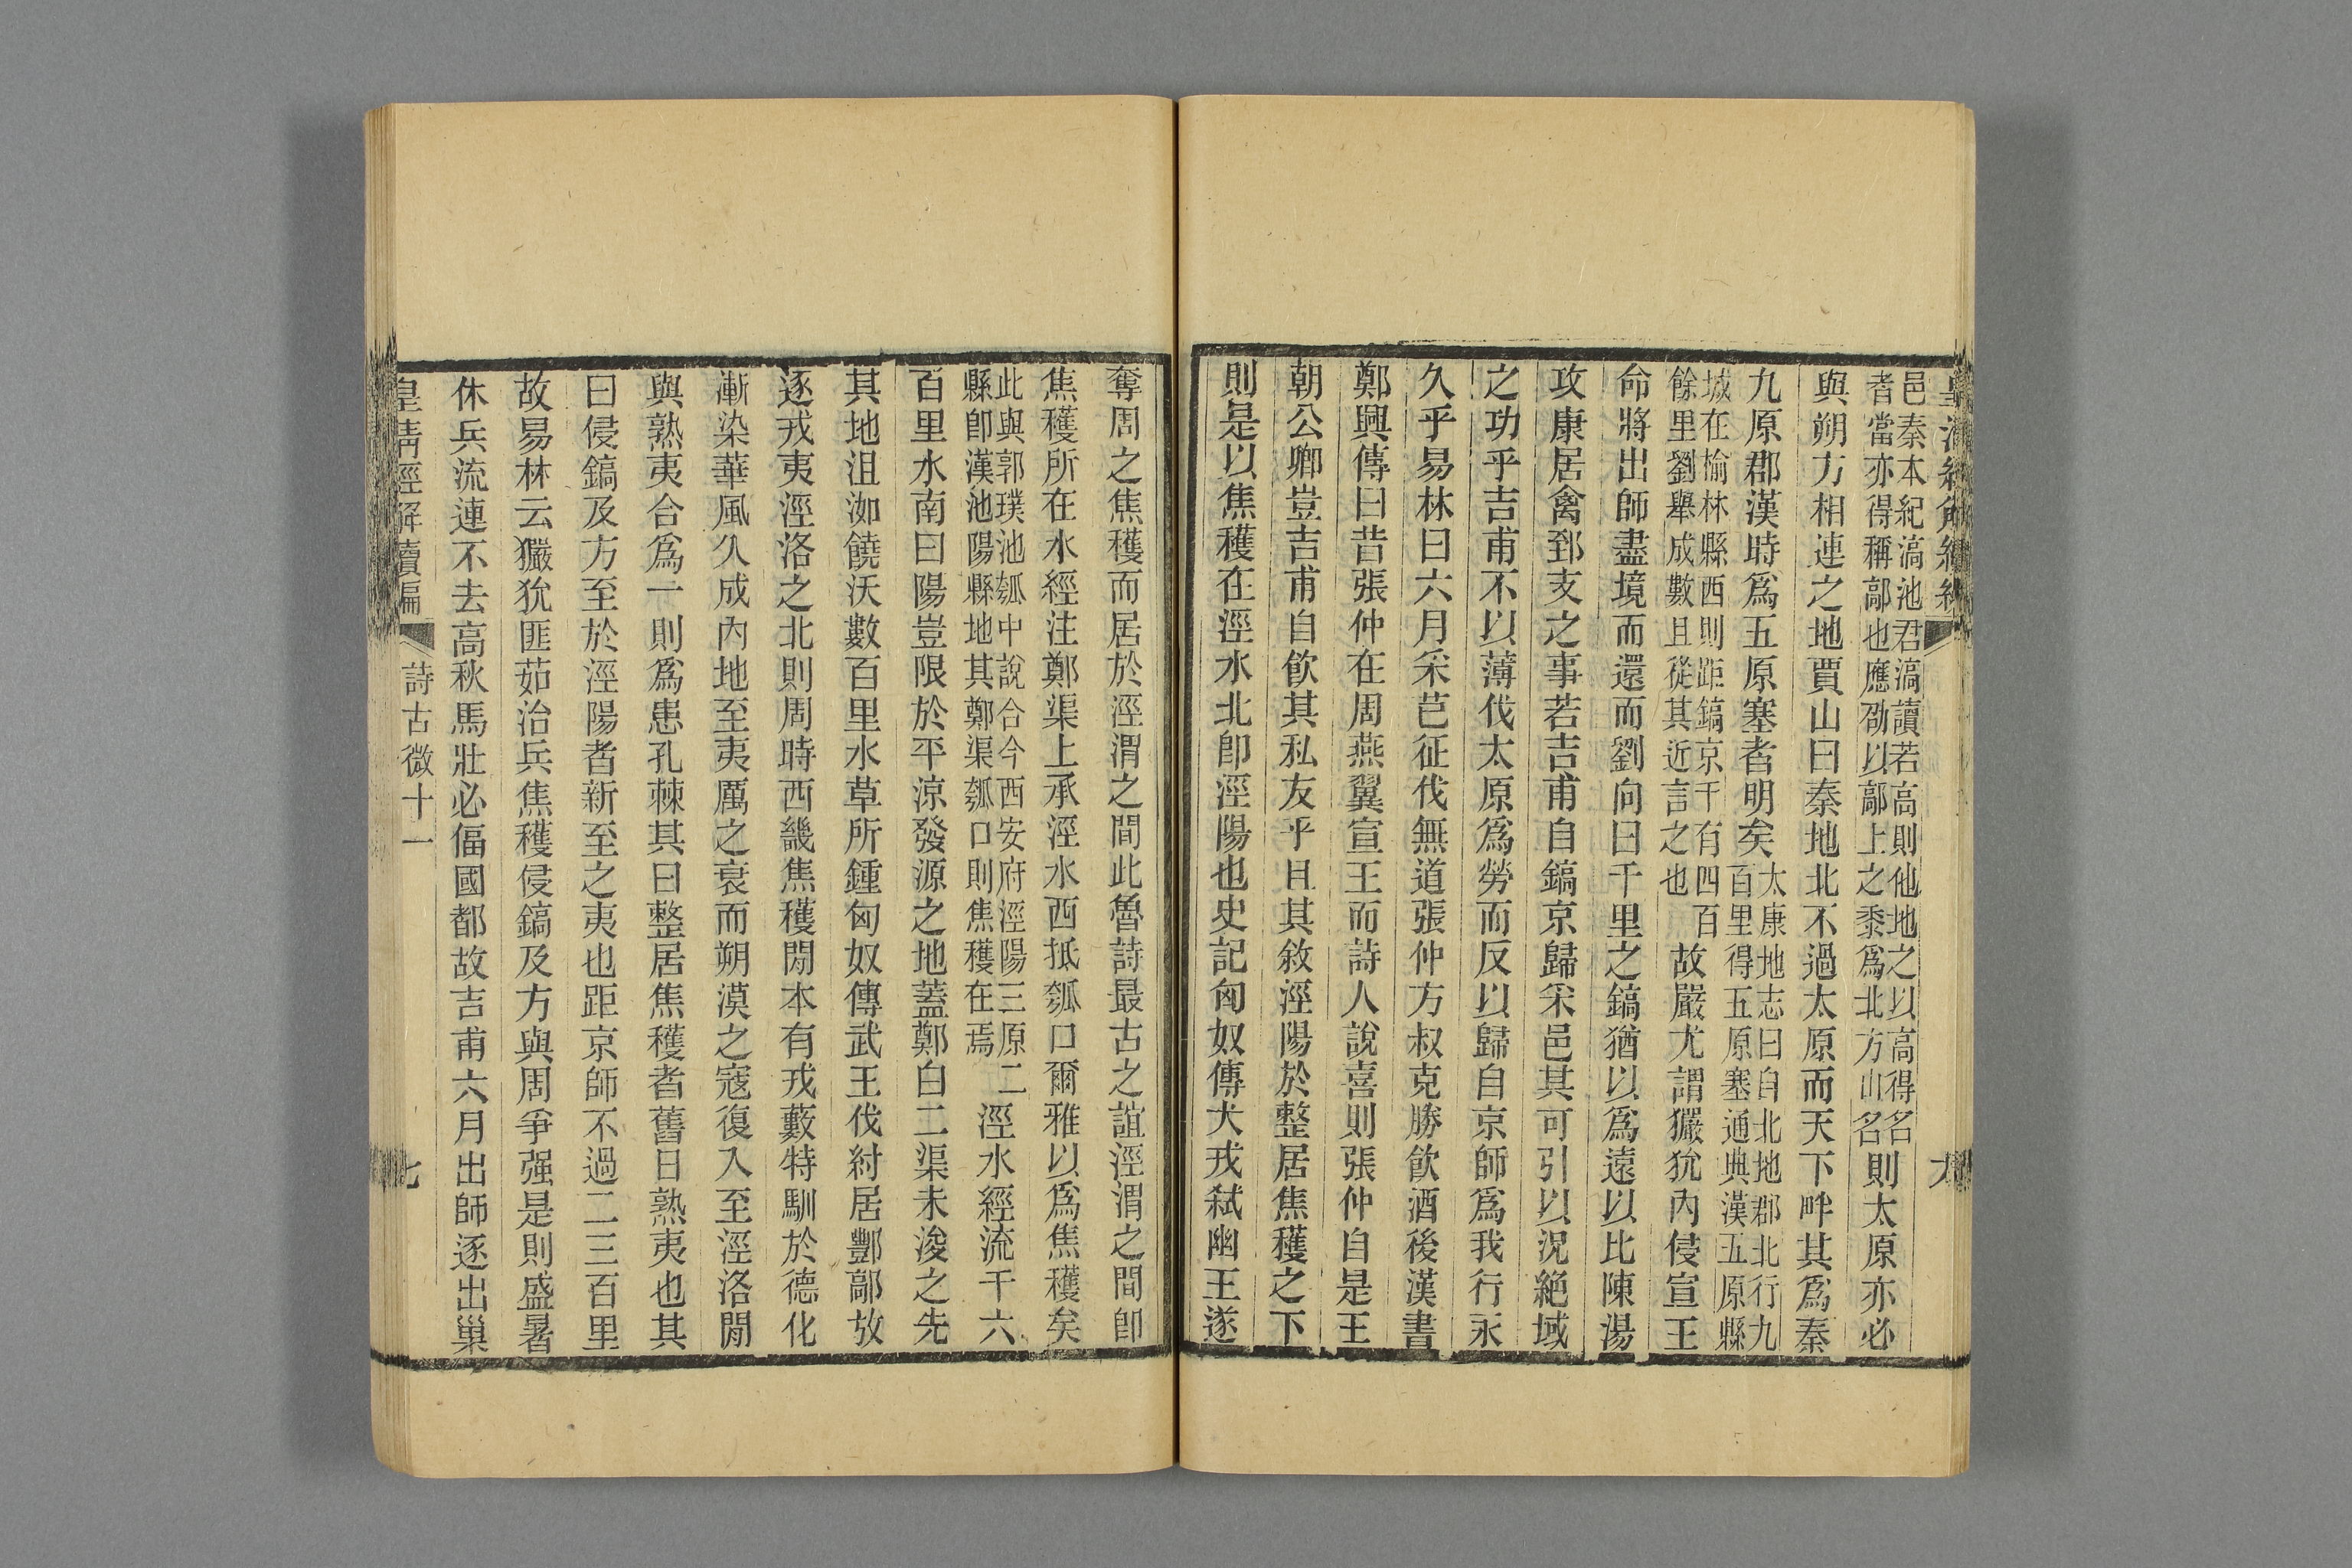 邑秦本紀滈池君滈讀若高則他地之以高得名
者當亦得稱鄗也應劭以鄗上之黍爲北方山名則太原亦必
與朔方相連之地賈山曰秦地北不過太原而天下畔其爲秦
九原郡漢時爲五原塞者明矣太康地志曰自北地郡北行九
百里得五原塞通典漢五原縣
城在榆林縣西則距鎬京千有四百
餘里劉舉成數且從其近言之也故嚴尤謂玁狁內侵宣王
命將出師盡境而還而劉向曰千里之鎬猶以爲遠以比陳湯
攻康居禽郅支之事若吉甫自鎬京歸采邑其可引以況絕域
之功乎吉甫不以薄伐太原爲勞而反以歸自京師爲我行永
久乎易林曰六月采芑征伐無道張仲方叔克勝飮酒後漢書
鄭興傳曰昔張仲在周燕翼宣王而詩人說喜則張仲自是王
朝公卿豈吉甫自飮其私友乎且其敘涇陽於整居焦穫之下
則是以焦穫在涇水北卽涇陽也史記匈奴傳犬戎弑幽王遂
奪周之焦穫而居於涇渭之間此魯詩最古之誼涇渭之間卽
焦穫所在水經注鄭渠上承涇水西抵瓠口爾雅以爲焦穫矣
此與郭璞池瓠中說合今西安府涇陽三原二
縣卽漢池陽縣地其鄭渠瓠口則焦穫在焉涇水經流千六
百里水南曰陽豈限於平涼發源之地蓋鄭白二渠未浚之先
其地沮洳饒沃數百里水草所鍾匈奴傳武王伐紂居酆鄗放
逐戎夷涇洛之北則周時西畿焦穫閒本有戎藪特馴於德化
漸染華風久成內地至夷厲之衰而朔漠之寇復入至涇洛閒
與熟夷合爲一則爲患孔棘其曰整居焦穫者舊日熟夷也其
曰侵鎬及方至於涇陽者新至之夷也距京師不過二三百里
故易林云玁狁匪茹治兵焦穫侵鎬及方與周爭强是則盛暑
休兵流連不去高秋馬壯必偪國都故吉甫六月出師逐出巢
皇清經解續編 詩古微十一 七